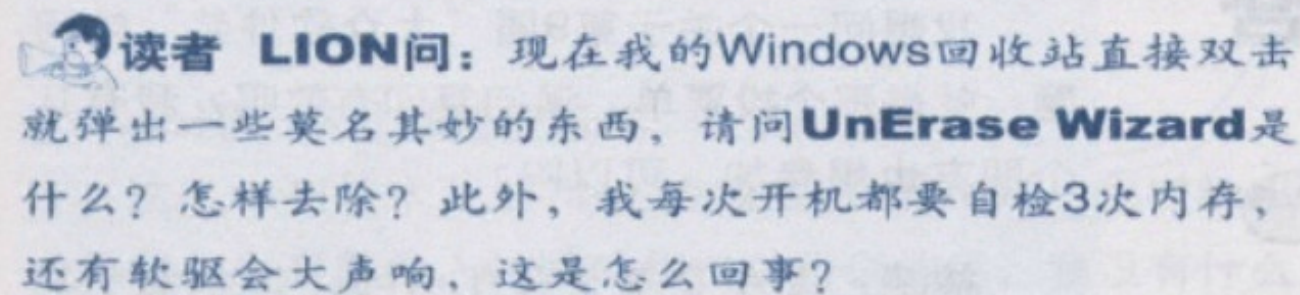 读者 LION问：现在我的Windows回收站直接双击
就弹出一些莫名其妙的东西，请问UnErase Wizard是
什么？怎样去除？此外，我每次开机都要自检3次内存，
还有软驱会大声响，这是怎么回事？